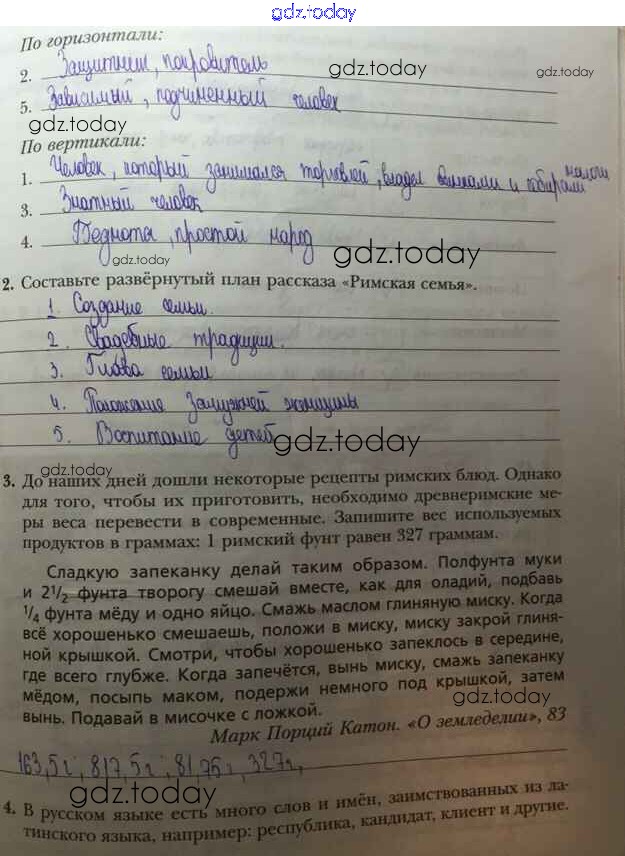 gdz.today
По горизонтали:
2. Защитник, покровитель
gdz.today
gdz.today
5. Зависимый, подчиненный человек
gdz.today
По вертикали:
1. Человек, который занимался торговлей, владел и собирали налоги
3. Знатный человек
4. Беднота, простой народ
gdz.today
gdz.today
2. Составьте развёрнутый план рассказа «Римская семья».
1. Создание семьи.
2. Свадебные традиции.
3. Глава семьи
4. Положение замужней женщины
5. Воспитание детей
gdz.today
3. До наших дней дошли некоторые рецепты римских блюд. Однако
для того, чтобы их приготовить, необходимо древнеримские ме-
ры веса перевести в современные. Запишите вес используемых
продуктов в граммах: 1 римский фунт равен 327 граммам.
Сладкую запеканку делай таким образом. Полфунта муки
и 2 1/2 фунта творогу смешай вместе, как для оладий, подбавь
1/4 фунта мёду и одно яйцо. Смажь маслом глиняную миску. Когда
всё хорошенько смешаешь, положи в миску, миску закрой глиня-
ной крышкой. Смотри, чтобы хорошенько запеклось в середине,
где всего глубже. Когда запечётся, вынь миску, смажь запеканку
мёдом, посыпь маком, подержи немного под крышкой, затем
вынь. Подавай в мисочке с ложкой.
gdz.today
Марк Порций Катон. «О земледелии», 83
163,5 г; 817,5 г; 81,75 г, 327 г,
gdz.today
4. В русском языке есть много слов и имён, заимствованных из ла-
тинского языка, например: республика, кандидат, клиент и другие.